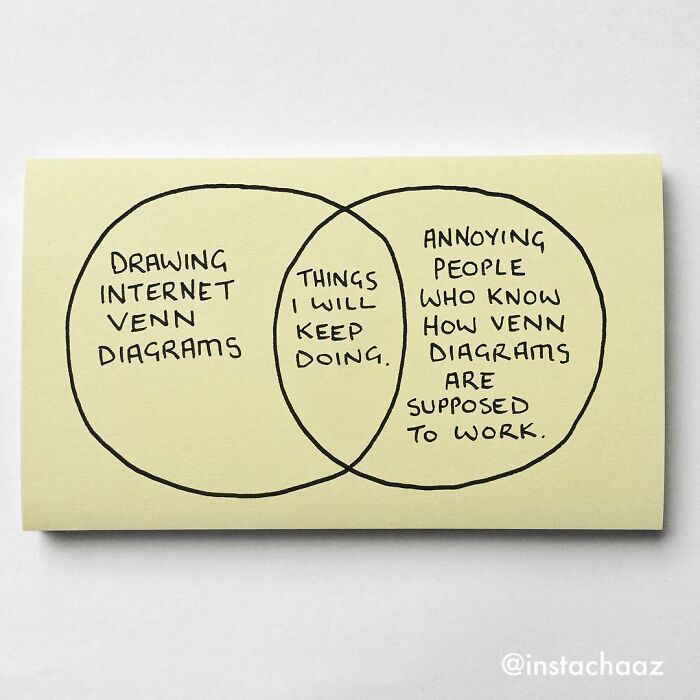 DRAWING
INTERNET
VENN
DIAGRAMS
THINGS
I WILL
KEEP
DOING.
ANNOYING
PEOPLE
WHO KNOW
HOW VENN
DIAGRAMS
ARE
SUPPOSED
TO WORK.
@instachaaz